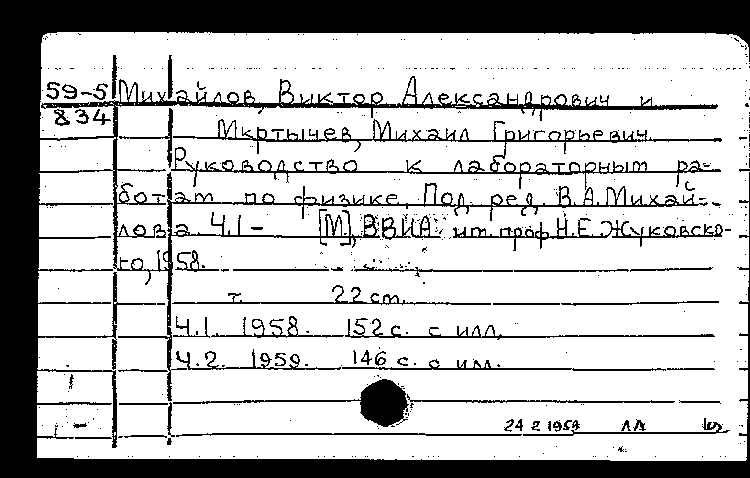 59-5 Михайлов, Виктор Александрович и
834 Мкртычев, Михаил Григорьевич.
Руководство к лабораторным ра-
ботам по физике. Под ред. В.А.Михай-
лова. Ч.1- [М], ВВИА им. проф. Н.Е.Жуковско-
го, 1958.
т. 22 cm.
Ч.1. 1958. 152 с. с илл.
Ч.2. 1959. 146 с. с илл.
24 1959